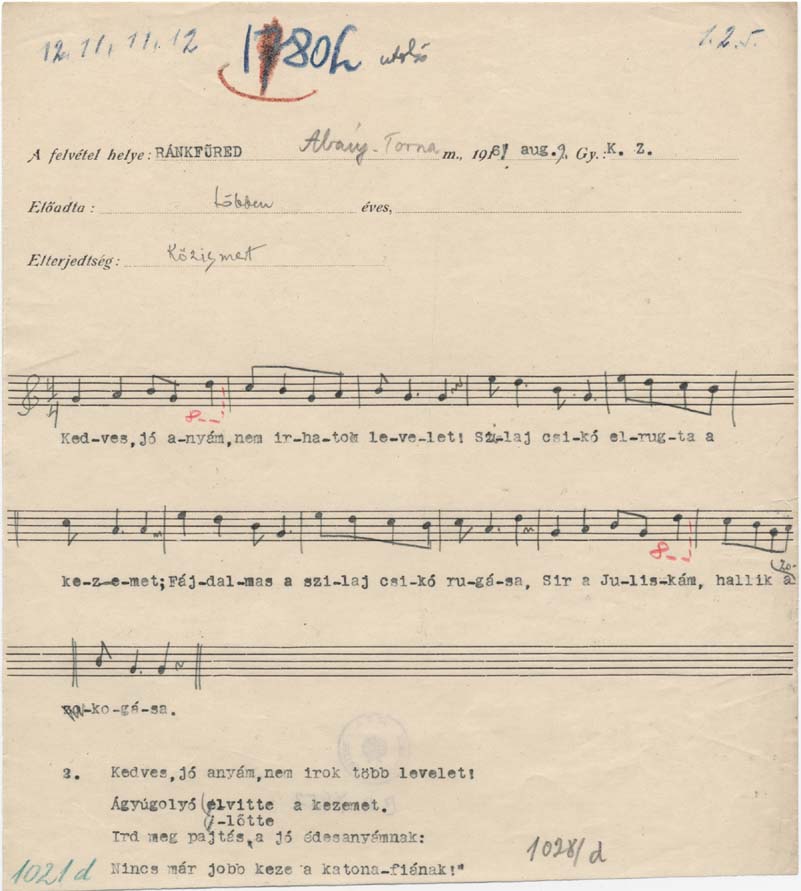 12, 11, 11, 12
1780h utolsó
1.2.5.
A felvétel helye: RÁNKFÜRED Abaúj-Torna m., 1916/ aug.9, Gy.: K. Z.
Előadta: többen éves,
Elterjedtség: Közismert
8
Ked-ves,jó a-nyám,nem ir-ha-tok le-ve-let! Szi-laj csi-kó el-rug-ta a
8
zo-
ke-z-e-met;Fáj-dal-mas a szi-laj csi-kó ru-gá-sa, Sir a Ju-lis-kám, hallik a
zo-ko-gá-sa.
2. Kedves,jó anyám,nem irok több levelet!
Ágyúgolyó elvitte a kezemet.
-lőtte
Ird meg pajtás,a jó édesanyámnak:
Nincs már jobb keze a katona-fiának!"
1021d
1028/d